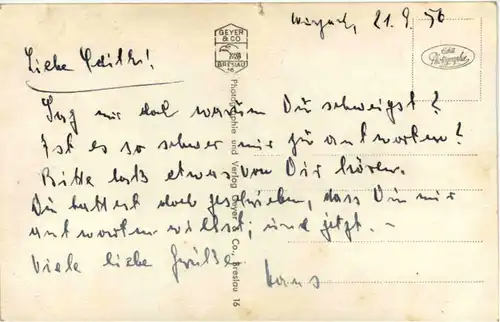 21. 9. 56
GEYER & CO
BRESLAU 16
Echte Photographie
Liebe Edith!
Sag mir doch warum Du schweigst?
Ist es so schwer mir zu antworten?
Bitte laß etwas von Dir hören.
Du hattest doch geschrieben, dass Du mir
antworten willst, und jetzt. –
Viele liebe Grüße
Hans
Photographie und Verlag Geyer & Co., Breslau 16